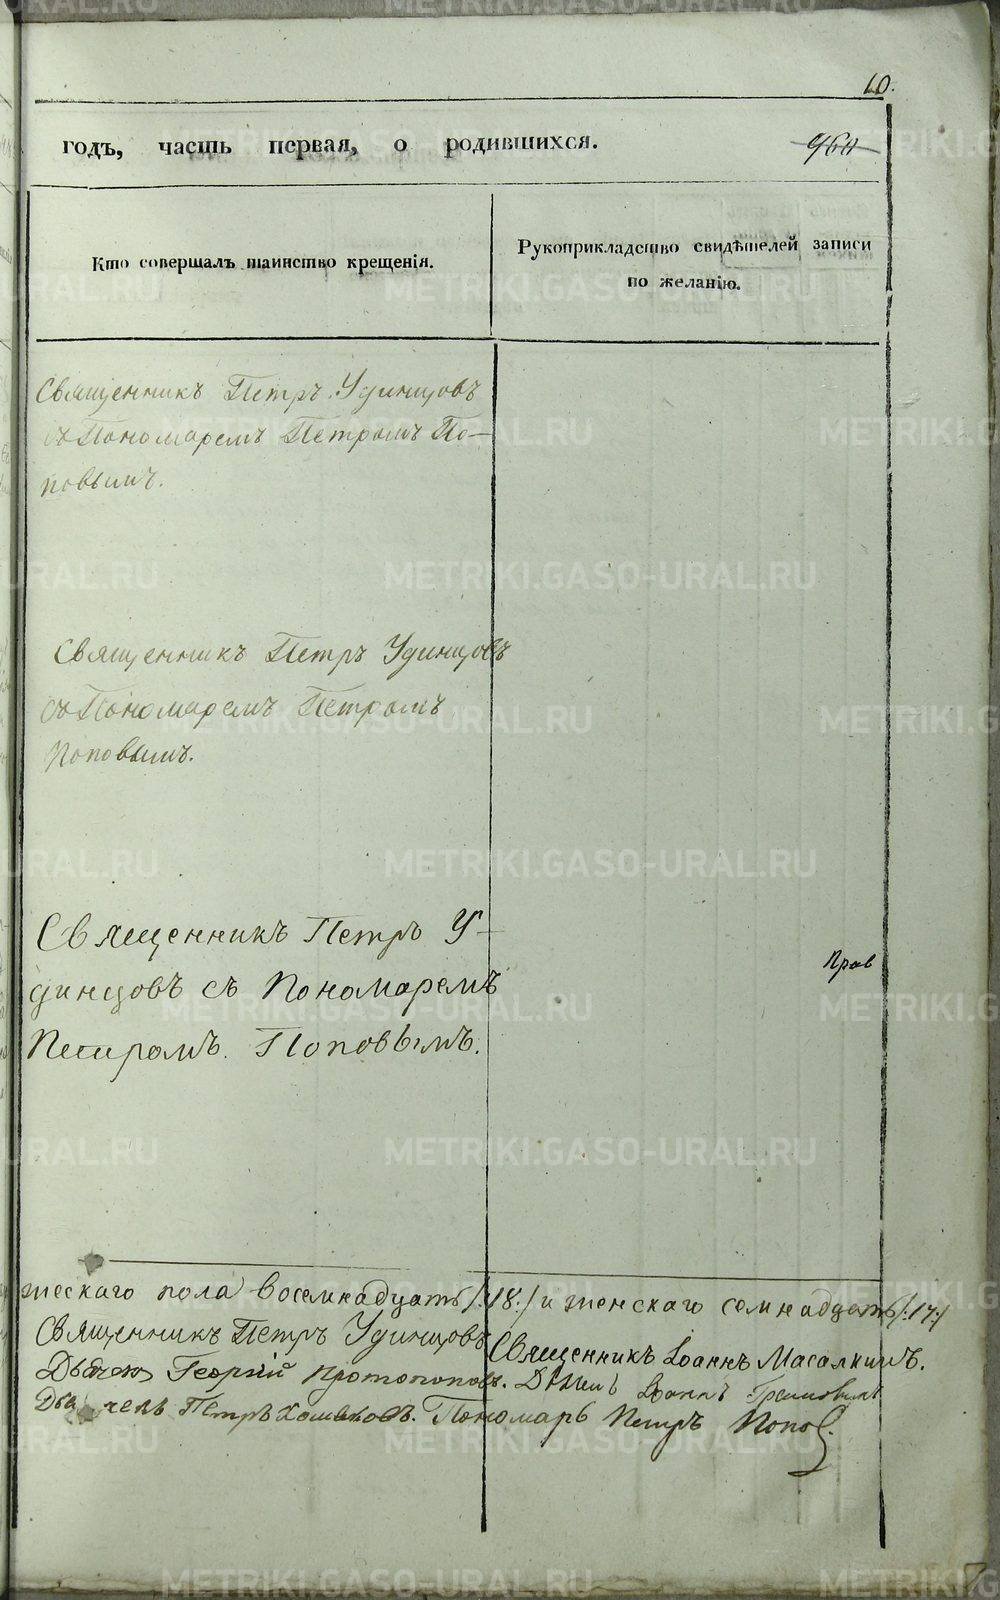 10.
годъ, часть первая, о родившихся.
960
Кто совершалъ таинство крещенія.
Рукоприкладство свидѣтелей записи
по желанію.
Священникъ Петръ Удинцовъ
съ Пономаремъ Петромъ По-
повымъ.
Священникъ Петръ Удинцовъ
съ Пономаремъ Петромъ
Поповымъ.
Священникъ Петръ У-
динцовъ съ Пономаремъ
Петромъ Поповымъ.
Прав
жескаго пола восемнадцать /:18:/ и женскаго семнадцать /:17:/
Священникъ Петръ Удинцовъ Священникъ Іоаннъ Масалкинъ.
Георгій Протопоповъ. Іоаннъ
Петръ Пономарь Петръ Попов.
METRIKI.GASO-URAL.RU